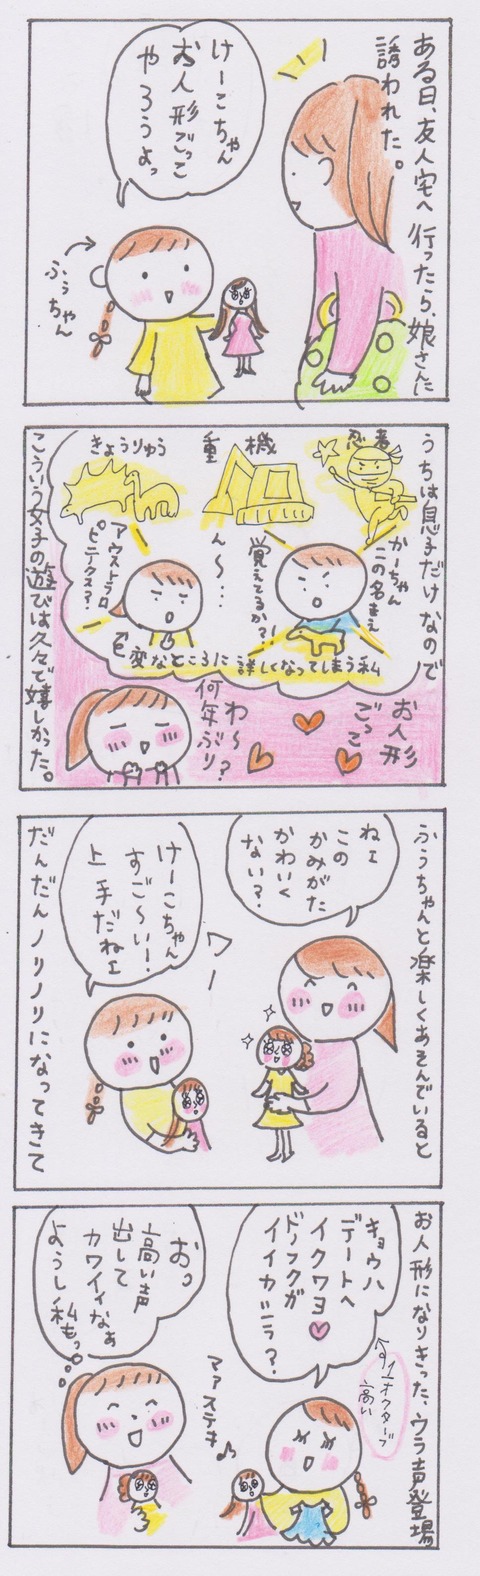 ある日、友人宅へ行ったら、娘さんに
誘われた。
けーこちゃん
お人形ごっこ
やろうよっ
ふぅちゃん
うちは息子だけなので
忍者
重機
きょうりゅう
かーちゃん
この名まえ
覚えてるか?!
ん〜…
アウストラロ
ピテクス?
変なところに詳しくなってしまう私
お人形
ごっこ
わ〜?
何年ぶり
こういう女子の遊びは久々で嬉しかった。
ふぅちゃんと楽しくあそんでいると
ねェ
この
かみがた
かわいく
ない?
ワー
けーこちゃん
すご〜い!
上手だねェ
だんだんノリノリになってきて
お人形になりきった、ウラ声登場
1オクターブ
高い
キョウハ
デートへ
イクワヨ♥
ドノフクガ
イイカシラ?
マァステキ♪
おっ
高い声
出して
カワイイなぁ
ようし私もっ